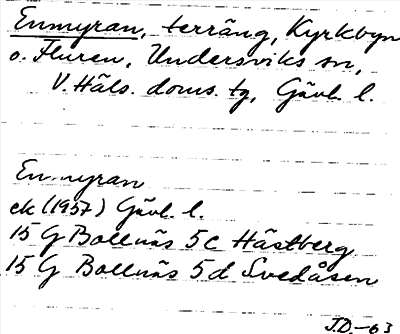 Enmyran, terräng, Kyrkbyn
o. Fluren, Undersviks sn,
V. Häls. doms. tg, Gävl. l.
Enmyran
ek (1957) Gävl. l.
15 G Bollnäs 5c Hästberg
15 G Bollnäs 5d Svedåsen
J.D.-63